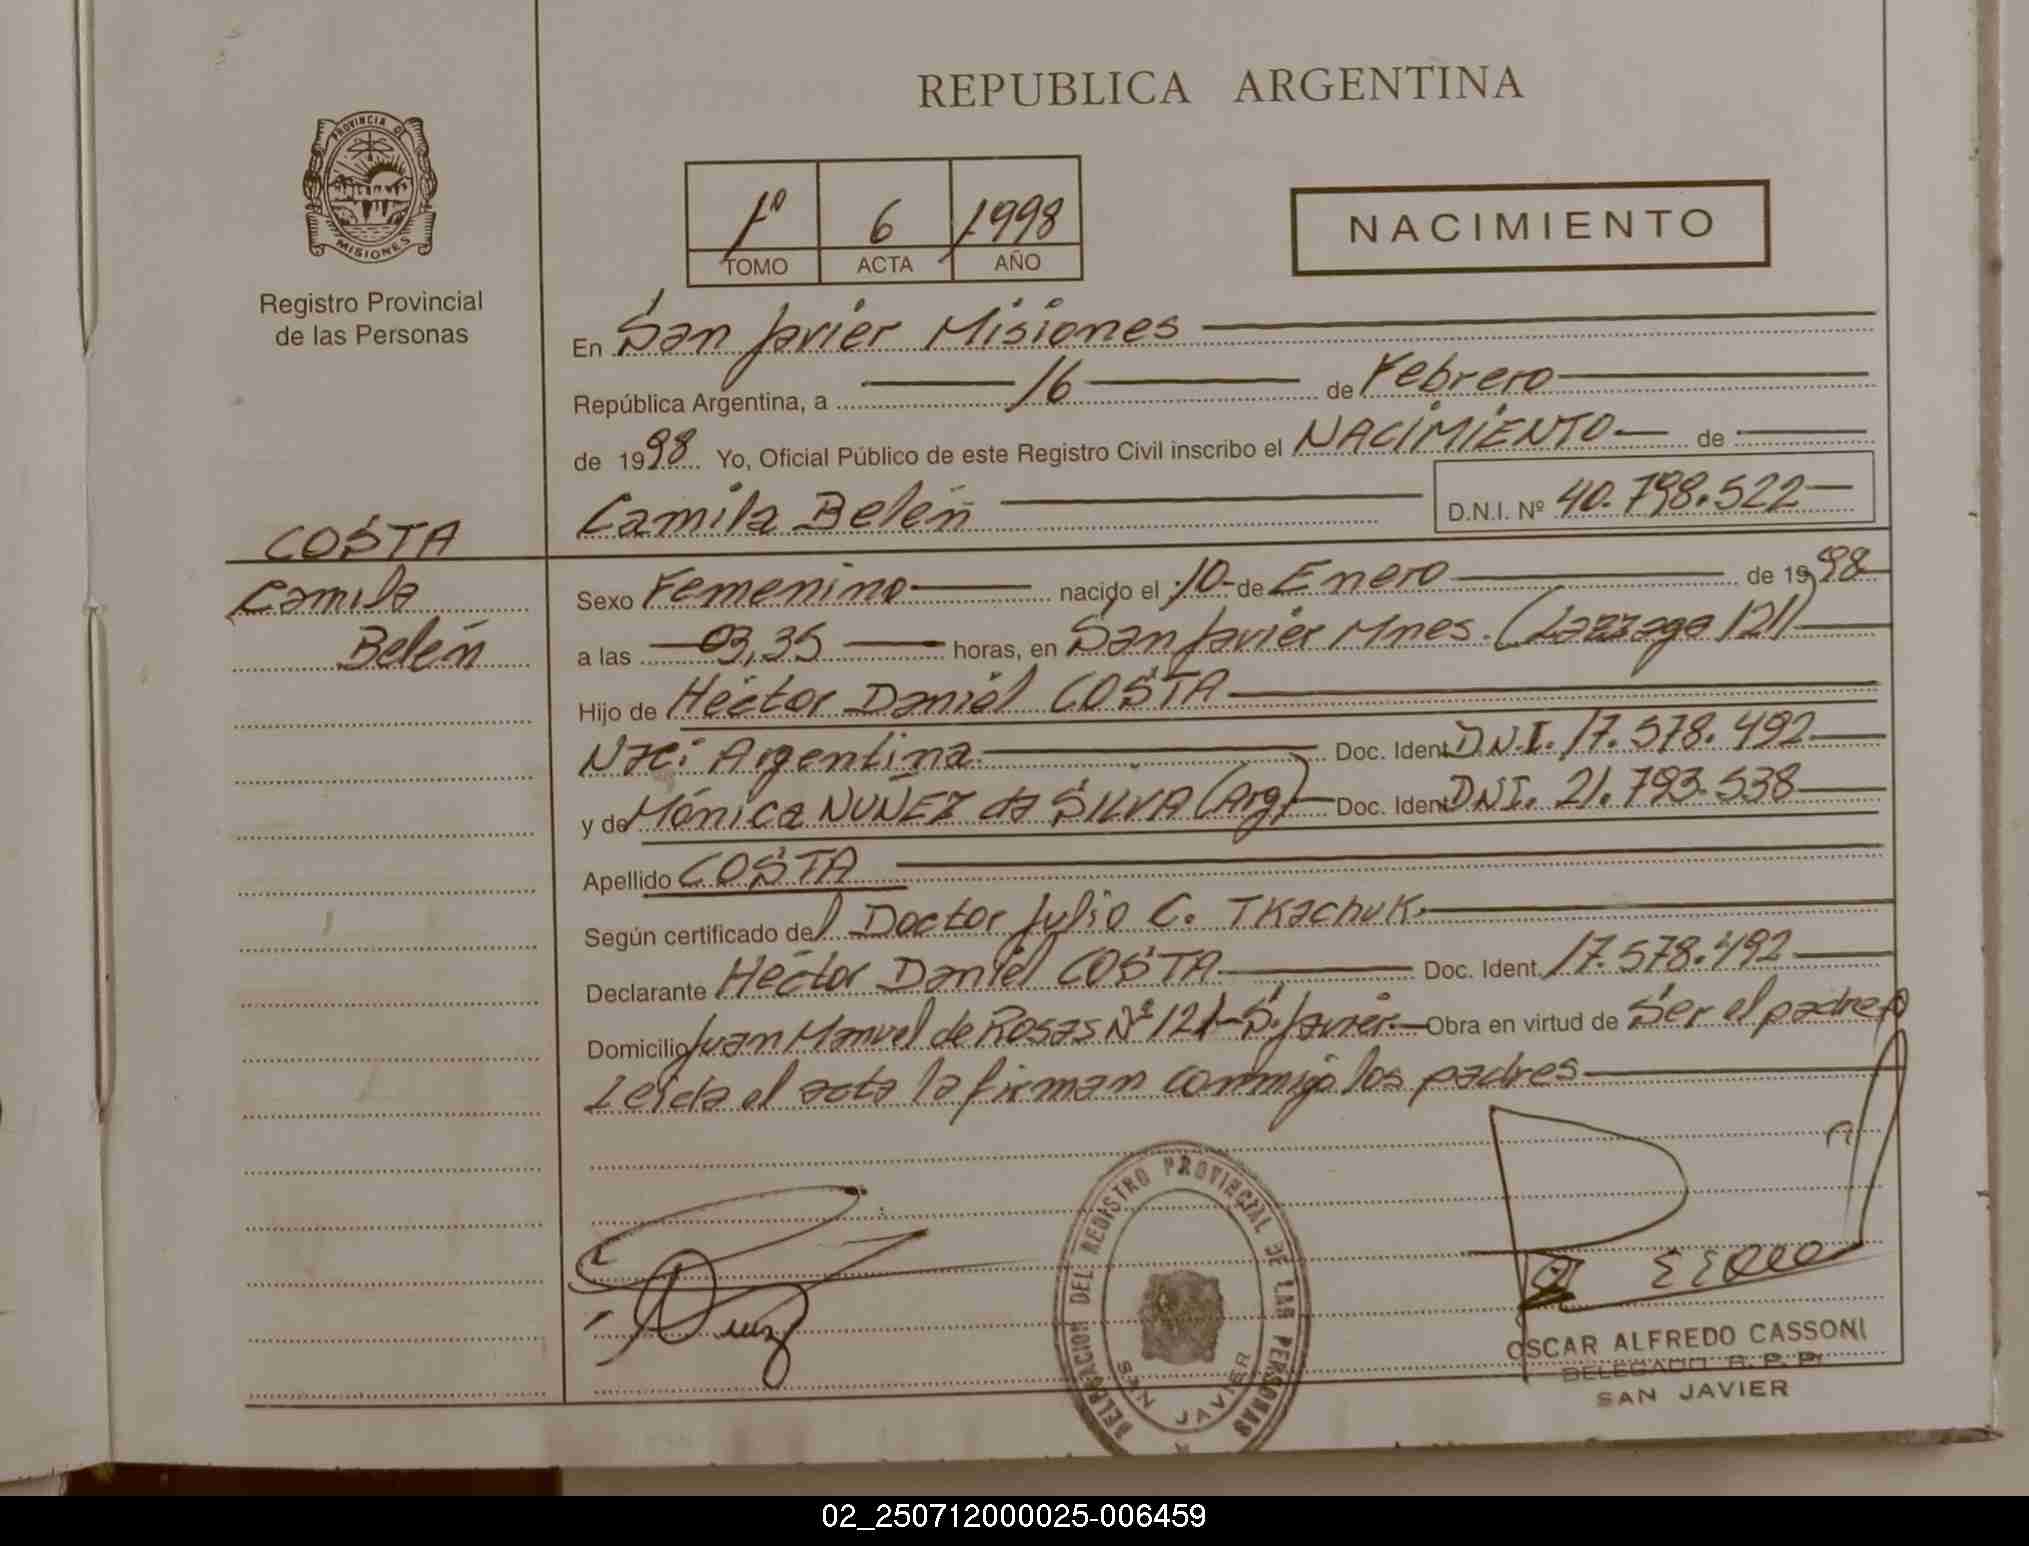 REPUBLICA ARGENTINA
PROVINCIA DE
MISIONES
Registro Provincial
de las Personas
1º 6 1998
TOMO ACTA AÑO
NACIMIENTO
En San Javier Misiones
República Argentina, a 16 de Febrero
de 1998 Yo, Oficial Público de este Registro Civil inscribo el NACIMIENTO de
Camila Belén D.N.I. Nº 40.798.522
COSTA
Camila
Belén
Sexo Femenino nacido el 10 de Enero de 1998
a las 03,35 horas, en San Javier Mnes. (Lazzaga 121)
Hijo de Héctor Daniel COSTA
Nac: Argentina Doc. Ident D.N.I. 17.578.492
y de Mónica NUÑEZ da SILVA (Arg) Doc. Ident DNI. 21.793.538
Apellido COSTA
Según certificado del Doctor Julio C. TKachuK
Declarante Héctor Daniel COSTA Doc. Ident. 17.578.492
Domicilio Juan Manuel de Rosas Nº 121-S. Javier Obra en virtud de Ser el padre
Leida el acta la firman conmigo los padres
DELEGACION DEL REGISTRO PROVINCIAL DE LAS PERSONAS
SAN JAVIER
OSCAR ALFREDO CASSONI
DELEGADO R. P. P.
SAN JAVIER
02_250712000025-006459